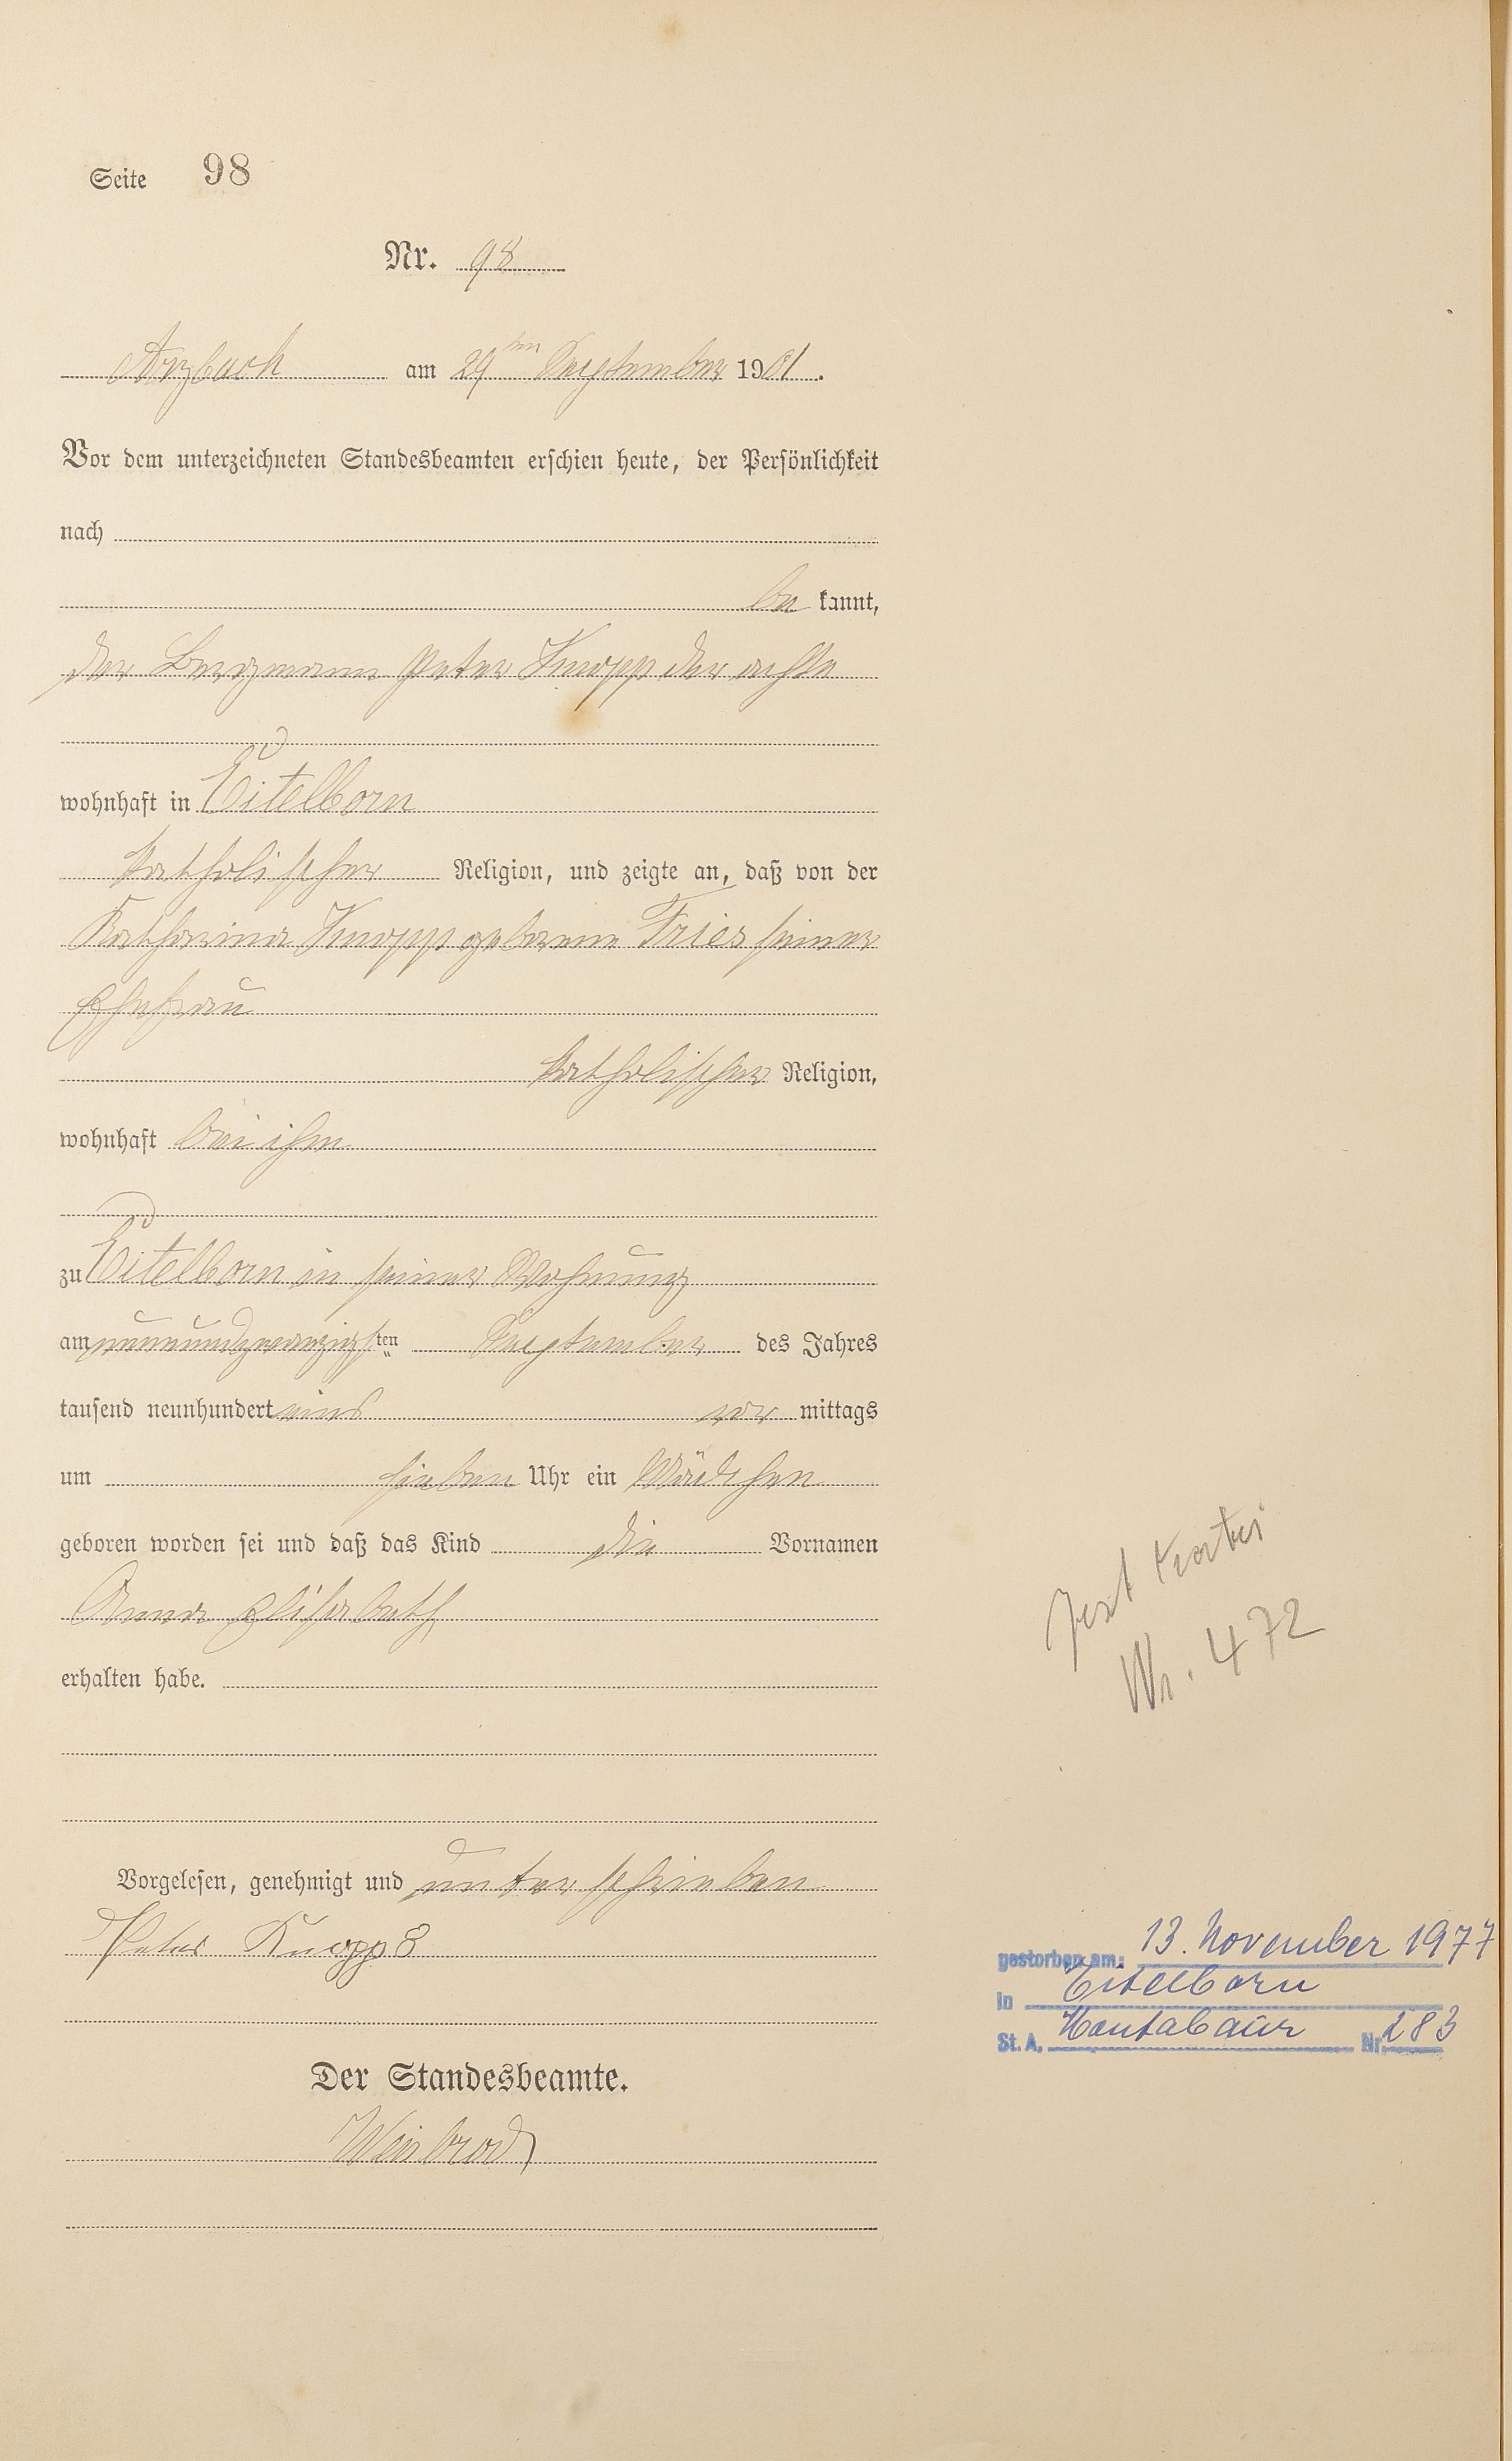 Seite 98
Nr. 98
Arzbach am 29ten September 1901.
Vor dem unterzeichneten Standesbeamten erschien heute, der Persönlichkeit
nach
be kannt,
der Bergmann Peter Knopp der achte
wohnhaft in Eitelborn
katholischer Religion, und zeigte an, daß von der
Katharina Knopp geborene Fries seiner
Ehefrau
katholischer Religion,
wohnhaft bei ihm
zu Eitelborn in seiner Wohnung
am neunundzwanzigsten September des Jahres
tausend neunhundert eins vor mittags
um sieben Uhr ein Mädchen
geboren worden sei und daß das Kind die Vornamen
Anna Elisabeth
erhalten habe.
Nr. 472
Vorgelesen, genehmigt und unterschrieben
Peter Knopp 8
gestorben am: 13. November 1977
in Eitelborn
St. A. Montabaur Nr. 283
Der Standesbeamte.
Weisbrod